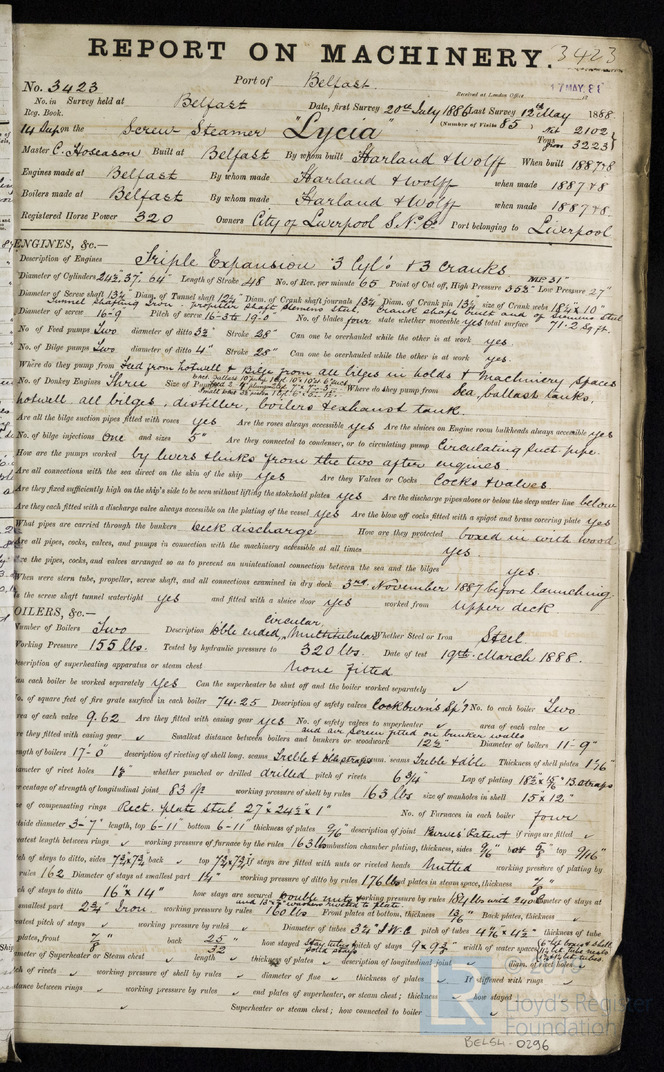 REPORT ON MACHINERY. 3423
No. 3423 Port of Belfast
Received at London Office 17 MAY 88
No. in Survey held at Belfast Date, first Survey 20th July 1886 Last Survey 12th May 1888
Reg. Book. (Number of Visits 85)
14 Sup on the Screw Steamer "Lycia" Tons Net 2102 Gross 3223
Master C. Hoseason Built at Belfast By whom built Harland & Wolff When built 1887&8
Engines made at Belfast By whom made Harland & Wolff when made 1887&8
Boilers made at Belfast By whom made Harland & Wolff when made 1887&8
Registered Horse Power 320 Owners City of Liverpool S. N. Co. Port belonging to Liverpool
ENGINES, &c.—
Description of Engines Triple Expansion 3 Cyls & 3 cranks
Diameter of Cylinders 24½. 37. 64" Length of Stroke 48 No. of Rev. per minute 65 Point of Cut off, High Pressure 35¾" MP 31" Low Pressure 27"
Diameter of Screw shaft 13¾ Diam. of Tunnel shaft 12¼ Diam. of Crank shaft journals 13¼ Diam. of Crank pin 13¼ size of Crank webs 18¼ x 10"
Tunnel shafting Iron, propeller shaft Siemens steel. Crank shaft built and of Siemens Steel
Diameter of screw 16-9 Pitch of screw 16-3 to 19-0 No. of blades four state whether moveable yes total surface 71.2 sq. ft.
No of Feed pumps Two diameter of ditto 3¾" Stroke 28" Can one be overhauled while the other is at work yes.
No. of Bilge pumps Two diameter of ditto 4" Stroke 28" Can one be overhauled while the other is at work yes.
Where do they pump from Feed from hotwell & Bilge from all bilges in holds & machinery spaces
No. of Donkey Engines Three Size of Pumps Where do they pump from Sea, ballast tanks,
hotwell, all bilges, distiller, boilers & exhaust tank.
Are all the bilge suction pipes fitted with roses yes Are the roses always accessible yes Are the sluices on Engine room bulkheads always accessible yes
No. of bilge injections one and sizes 5" Are they connected to condenser, or to circulating pump Circulating suct. pipe.
How are the pumps worked by levers & links from the two after engines
Are all connections with the sea direct on the skin of the ship yes Are they Valves or Cocks Cocks & valves
Are they fixed sufficiently high on the ship's side to be seen without lifting the stokehold plates yes Are the discharge pipes above or below the deep water line below
Are they each fitted with a discharge valve always accessible on the plating of the vessel yes Are the blow off cocks fitted with a spigot and brass covering plate yes
What pipes are carried through the bunkers Deck discharge How are they protected boxed in with wood.
Are all pipes, cocks, valves, and pumps in connection with the machinery accessible at all times yes
Are the pipes, cocks, and valves arranged so as to prevent an unintentional connection between the sea and the bilges yes.
When were stern tube, propeller, screw shaft, and all connections examined in dry dock 3rd November 1887 before launching.
Is the screw shaft tunnel watertight yes and fitted with a sluice door yes worked from Upper deck
OILERS, &c.—
Number of Boilers Two Description Dble ended, circular Multitubular Whether Steel or Iron Steel
Working Pressure 155 lbs. Tested by hydraulic pressure to 320 lbs. Date of test 19th March 1888.
Description of superheating apparatus or steam chest None fitted
Can each boiler be worked separately yes Can the superheater be shut off and the boiler worked separately ✓
No. of square feet of fire grate surface in each boiler 74.25 Description of safety valves Cockburn's Sp'g No. to each boiler Two
Area of each valve 9.62 Are they fitted with easing gear yes No. of safety valves to superheater ✓ area of each valve ✓
Are they fitted with easing gear ✓ Smallest distance between boilers and bunkers or woodwork 12½" and air screen fitted on bunker walls Diameter of boilers 11-9"
Length of boilers 17'-0" description of riveting of shell long. seams Treble & dble straps circum. seams Treble & dble Thickness of shell plates
Diameter of rivet holes whether punched or drilled drilled pitch of rivets 6¾ Lap of plating B straps
Percentage of strength of longitudinal joint 83 working pressure of shell by rules 163 lbs size of manholes in shell 15" x 12"
Size of compensating rings Rect. plate steel 27" x 24½ x 1" No. of Furnaces in each boiler four
Outside diameter 3-7" length, top 6-11" bottom 6-11" thickness of plates 9/16 description of joint Purves' Patent if rings are fitted ✓
greatest length between rings ✓ working pressure of furnace by the rules 163 lbs combustion chamber plating, thickness, sides 9/16 back 5/8 top 9/16"
pitch of stays to ditto, sides back ✓ top If stays are fitted with nuts or riveted heads Nutted working pressure of plating by
rules 162 Diameter of stays at smallest part 1¼" working pressure of ditto by rules 176 lbs end plates in steam space, thickness 7/8
pitch of stays to ditto 16" x 14" how stays are secured Double nuts & washers riveted to plate working pressure by rules diameter of stays at
smallest part 2¾" Iron working pressure by rules 160 lbs Front plates at bottom, thickness 13/16 Back plates, thickness ✓
greatest pitch of stays ✓ working pressure by rules ✓ Diameter of tubes 3¼" I.W.G. pitch of tubes 4¾ x 4½ thickness of tube
plates, front 7/8 back 25/32 how stayed Stay tubes pitch of stays 9 x 9½ width of water spaces
Diameter of Superheater or Steam chest ✓ length ✓ thickness of plates ✓ description of longitudinal joint ✓ diam. of rivet holes ✓
pitch of rivets ✓ working pressure of shell by rules ✓ diameter of flue ✓ thickness of plates ✓ If stiffened with rings ✓
distance between rings ✓ working pressure by rules ✓ end plates of superheater, or steam chest; thickness ✓ how stayed ✓
Superheater or steam chest; how connected to boiler ✓
Lloyd's Register
Foundation
BEL54-0296